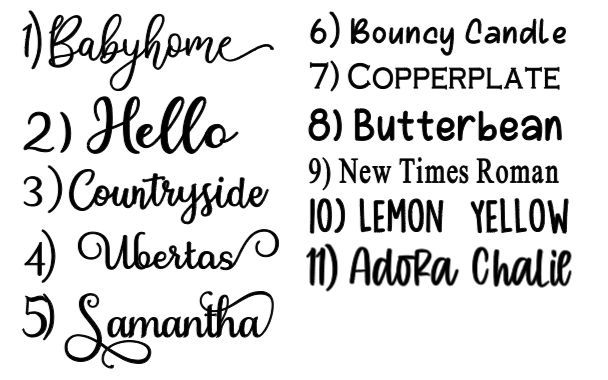 1) Babyhome
2) Hello
3) Countryside
4) Ubertas
5) Samantha
6) Bouncy Candle
7) COPPERPLATE
8) Butterbean
9) New Times Roman
10) LEMON YELLOW
11) Adora Chalie